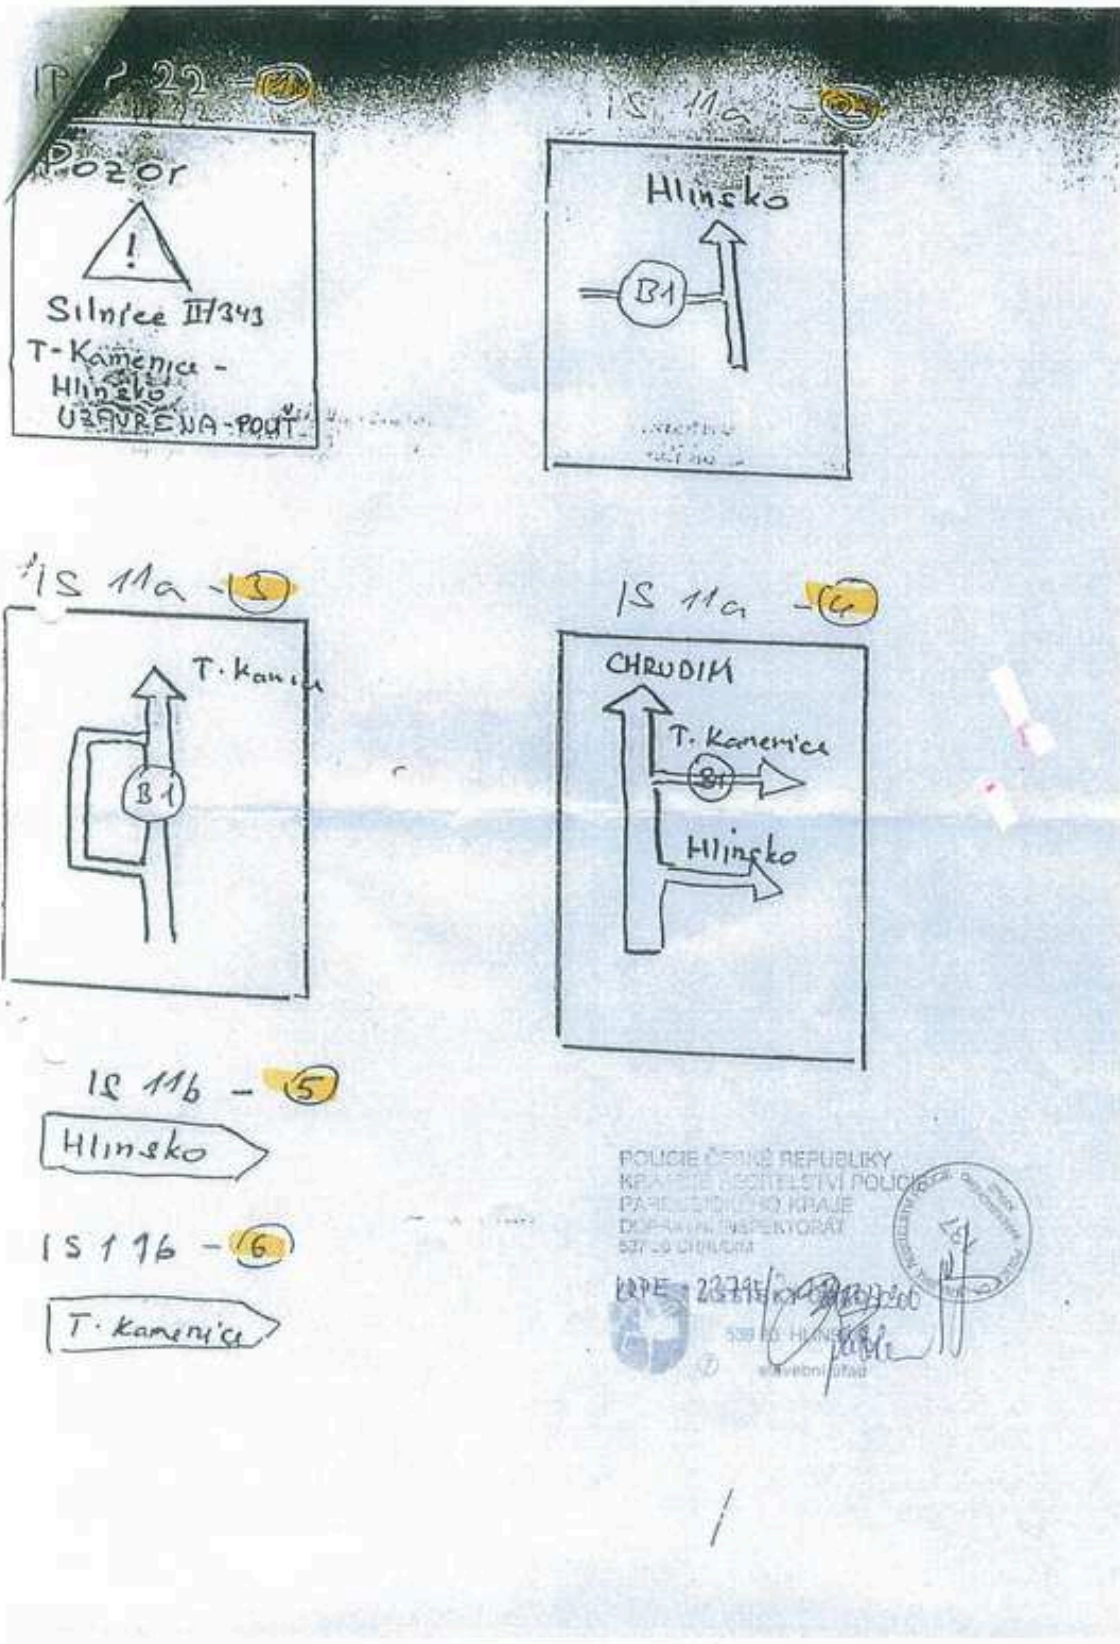 22 -
Pozor
!
Silnice II/343
T-Kamenice -
Hlinsko
UZAVŘENA-POUŤ
IS 11a -
Hlinsko
B1
IS 11a - 3
T. Kamenice
B1
IS 11a - 4
CHRUDIM
T. Kamenice
B1
Hlinsko
IS 11b - 5
Hlinsko
IS 11b - 6
T. Kamenice
POLICIE ČESKÉ REPUBLIKY
KRAJSKÉ ŘEDITELSTVÍ POLICIE
PARDUBICKÉHO KRAJE
DOPRAVNÍ INSPEKTORÁT
CHRUDIM
KRPE
HLINSKO
stavební úřad